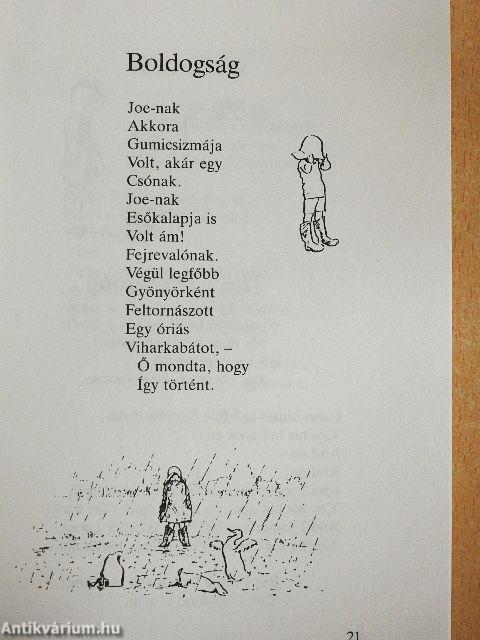 Boldogság
Joe-nak
Akkora
Gumicsizmája
Volt, akár egy
Csónak.
Joe-nak
Esőkalapja is
Volt ám!
Fejrevalónak.
Végül legfőbb
Gyönyörként
Feltornászott
Egy óriás
Viharkabátot, –
Ő mondta, hogy
Így történt.
21
Antikvárium.hu